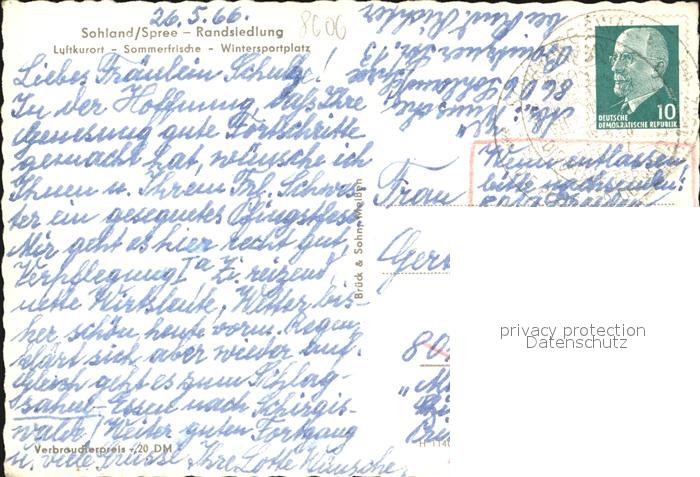 26.5.66.
8606
Sohland/Spree – Randsiedlung
Luftkurort – Sommerfrische – Wintersportplatz
Liebes Fräulein Schulze!
In der Hoffnung, daß Ihre
Genesung gute Fortschritte
gemacht hat, wünsche ich
Ihnen u. Ihrem Frl. Schwes-
ter ein gesegnetes Pfingstfest.
Mir geht es hier recht gut,
Verpflegung Ia Zi. reizend
nette Wirtsleute, Wetter bis-
her schön, heute vorm. Regen
klärt sich aber wieder auf.
Gleich geht es zum
sahne-Essen nach Schirgis-
walde! Weiter guten Fortgang
u. viele Grüsse Ihre Lotte Wünsche
Verbraucherpreis -,20 DM
Brück & Sohn, Meißen
Abs.: Wünsche
8606 Sohland/Spree
bei
DEUTSCHE
DEMOKRATISCHE REPUBLIK
10
Wenn entlassen
bitte nachsenden!
Frau
Ger
80
privacy protection
Datenschutz